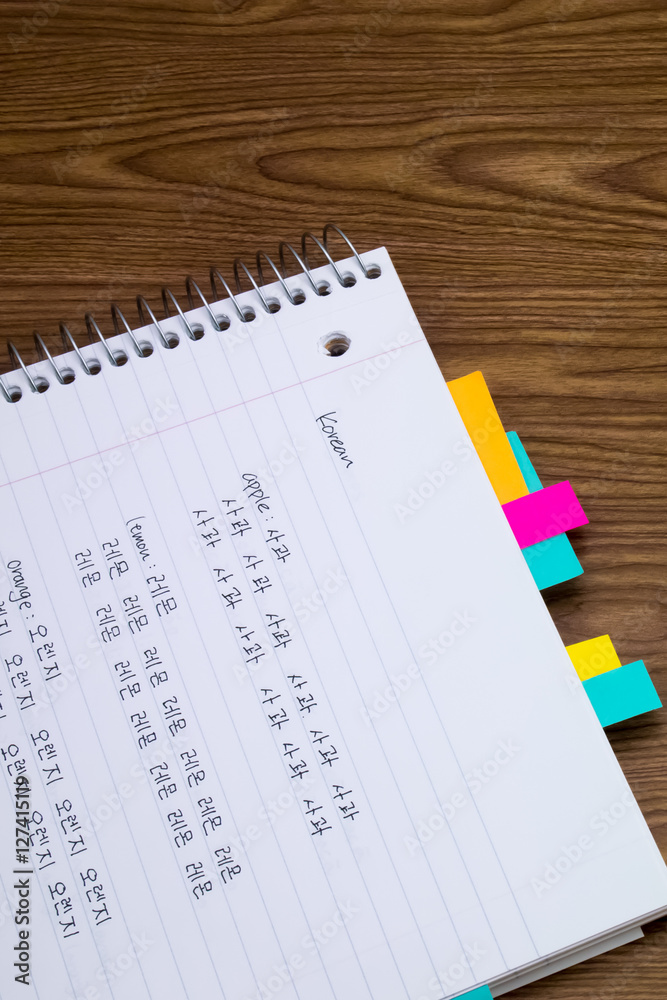 Korean
apple: 사과
사과 사과 사과 사과 사과 사과
사과 사과 사과 사과 사과 사과
lemon: 레몬
레몬 레몬 레몬 레몬 레몬 레몬 레몬
레몬 레몬 레몬 레몬 레몬 레몬 레몬
orange: 오렌지
오렌지 오렌지 오렌지 오렌지
오렌지 오렌지 오렌지
Adobe Stock | #127415119